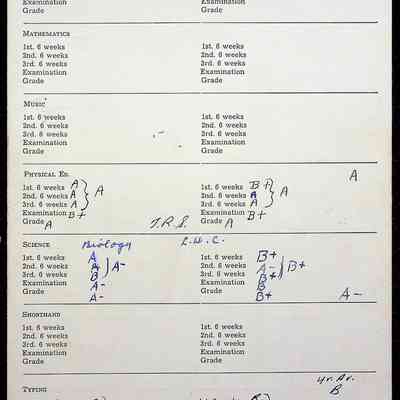 Examination Examination
Grade Grade
MATHEMATICS
1st. 6 weeks 1st. 6 weeks
2nd. 6 weeks 2nd. 6 weeks
3rd. 6 weeks 3rd. 6 weeks
Examination Examination
Grade Grade
MUSIC
1st. 6 weeks 1st. 6 weeks
2nd. 6 weeks 2nd. 6 weeks
3rd. 6 weeks 3rd. 6 weeks
Examination Examination
Grade Grade
PHYSICAL ED. A
1st. 6 weeks A 1st. 6 weeks B+
2nd. 6 weeks A A 2nd. 6 weeks A A
3rd. 6 weeks A 3rd. 6 weeks A
Examination B+ Examination B+
Grade A Grade A
SCIENCE Biology L.H.C.
1st. 6 weeks A 1st. 6 weeks B+
2nd. 6 weeks A- 2nd. 6 weeks A- B+
3rd. 6 weeks B 3rd. 6 weeks B+
Examination A- Examination B
Grade A- Grade B+ A-
SHORTHAND
1st. 6 weeks 1st. 6 weeks
2nd. 6 weeks 2nd. 6 weeks
3rd. 6 weeks 3rd. 6 weeks
Examination Examination
Grade Grade
Yr. Av.
TYPING B